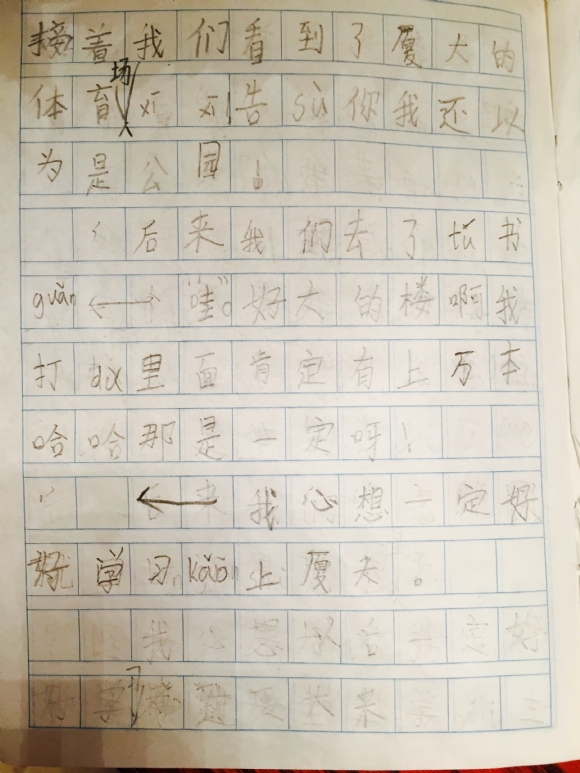 接着我们看到了厦大的
体育场xi xi告sù你我还以
为是公园！
后来我们去了tú书
guǎn“哇”。好大的楼啊我
打 里面肯定有上万本
哈哈那是一定呀！
我心想一定好
好学习kǎo上厦大。